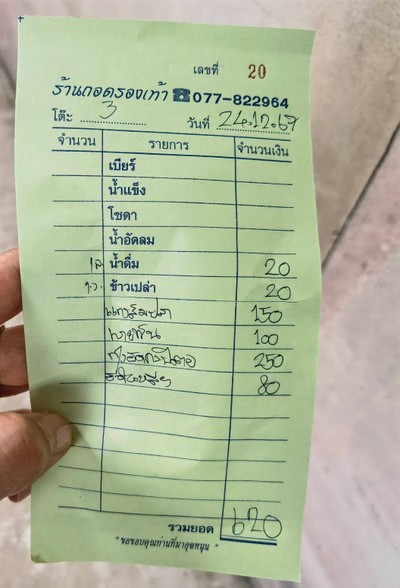 เลขที่ 20
ร้านถอดรองเท้า ☎077-822964
โต๊ะ 3 วันที่ 24.12.67
จำนวน รายการ จำนวนเงิน
เบียร์
น้ำแข็ง
โซดา
น้ำอัดลม
น้ำดื่ม 20
ข้าวเปล่า 20
แกงส้มปลา 150
100
250
80
รวมยอด 620
"ขอขอบคุณท่านที่มาอุดหนุน"